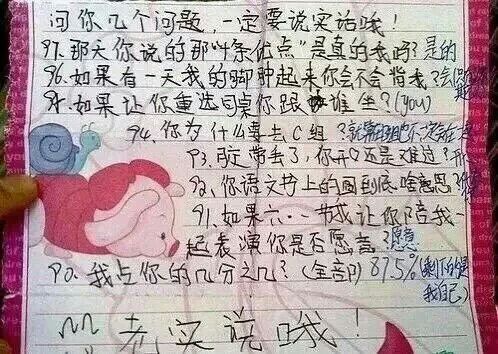 问你几个问题，一定要说实话哦！
97.那天你说的那"十条优点"是真的我吗？是的
96.如果有一天我的脚肿起来你会不会背我？会
95.如果让你重选同桌你跟谁坐？(you)
94.你为什么要去C组？
93. 丢了，你开心还是难过？
92.你语文书上的画到底啥意思？
91.如果六·一节我让你陪我一
起表演你是否愿意？愿意
90.我占你的几分之几？(全部) 87.5%(剩下的是
我自己)
老实说哦！